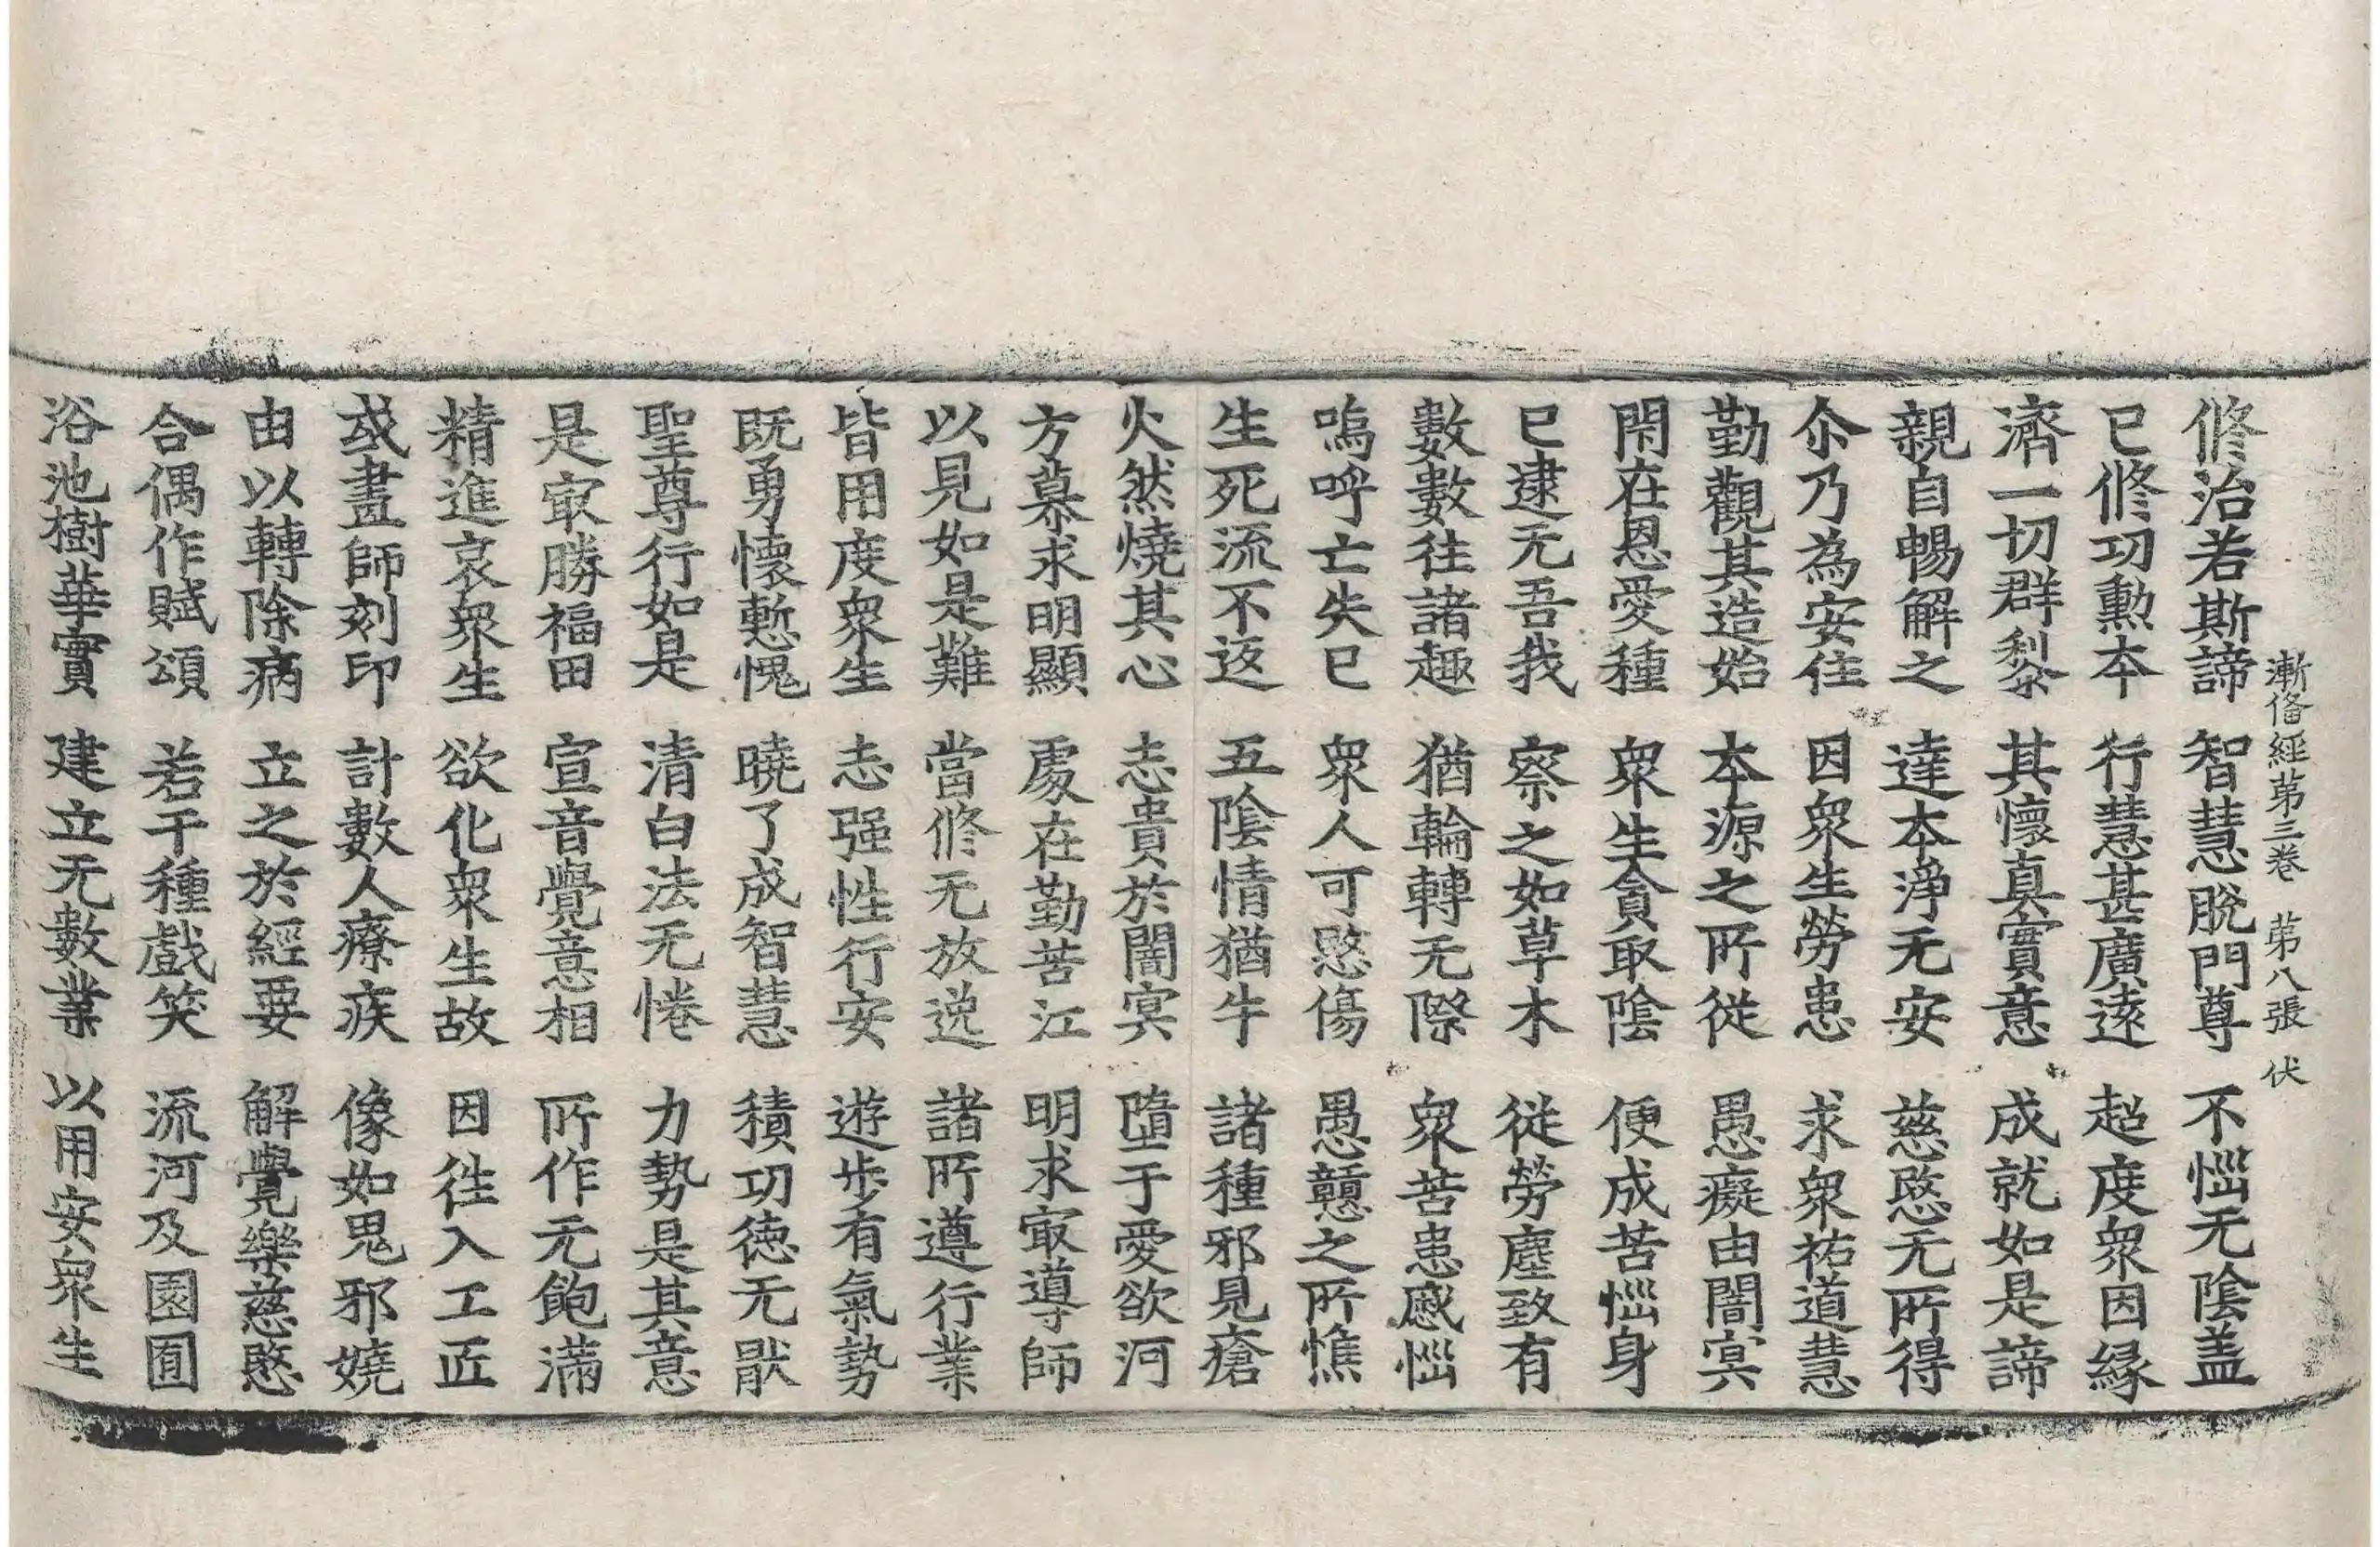 漸俻經第三卷　第八張　伏
修治若斯諦　智慧脫門尊　不惱无陰盖
已修功勲本　行慧甚廣遠　超度衆因緣
濟一切群黎　其懷真實意　成就如是諦
親自暢解之　達本淨无安　慈愍无所得
尒乃為安住　因衆生勞患　求衆祐道慧
勤觀其造始　本源之所從　愚癡由闇冥
閇在恩愛種　衆生貪取陰　便成苦惱身
已逮无吾我　察之如草木　從勞塵致有
數數往諸趣　猶輪轉无際　衆苦患慼惱
嗚呼亡失已　衆人可愍傷　愚戇之所憔
生死流不返　五陰情猶牛　諸種邪見瘡
火然燒其心　志貴於闇冥　墮于愛欲河
方慕求明顯　處在勤苦江　明求㝡導師
以見如是難　當修无放逸　諸所遵行業
皆用度衆生　志强性行安　遊步有氣勢
既勇懷慙愧　曉了成智慧　積功徳无猒
聖尊行如是　清白法无惓　力勢是其意
是㝡勝福田　宣音覺意相　所作无飽滿
精進哀衆生　欲化衆生故　因徃入工匠
或畫師刻印　計數人療疾　像如鬼邪嬈
由以轉除病　立之於經要　解覺樂慈愍
合偶作賦頌　若干種戲笑　流河及園囿
浴池樹華實　建立无數業　以用安衆生